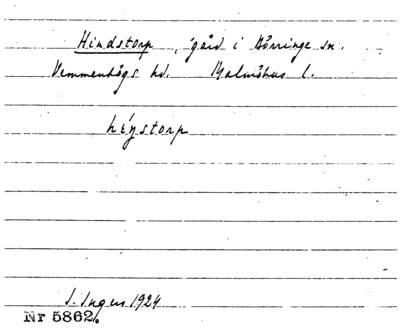 Hindstorp, gård i Börringe sn.
Vemmenhögs hd. Malmöhus l.
héŋstorp
I. Ingers 1924
Nr 5862.